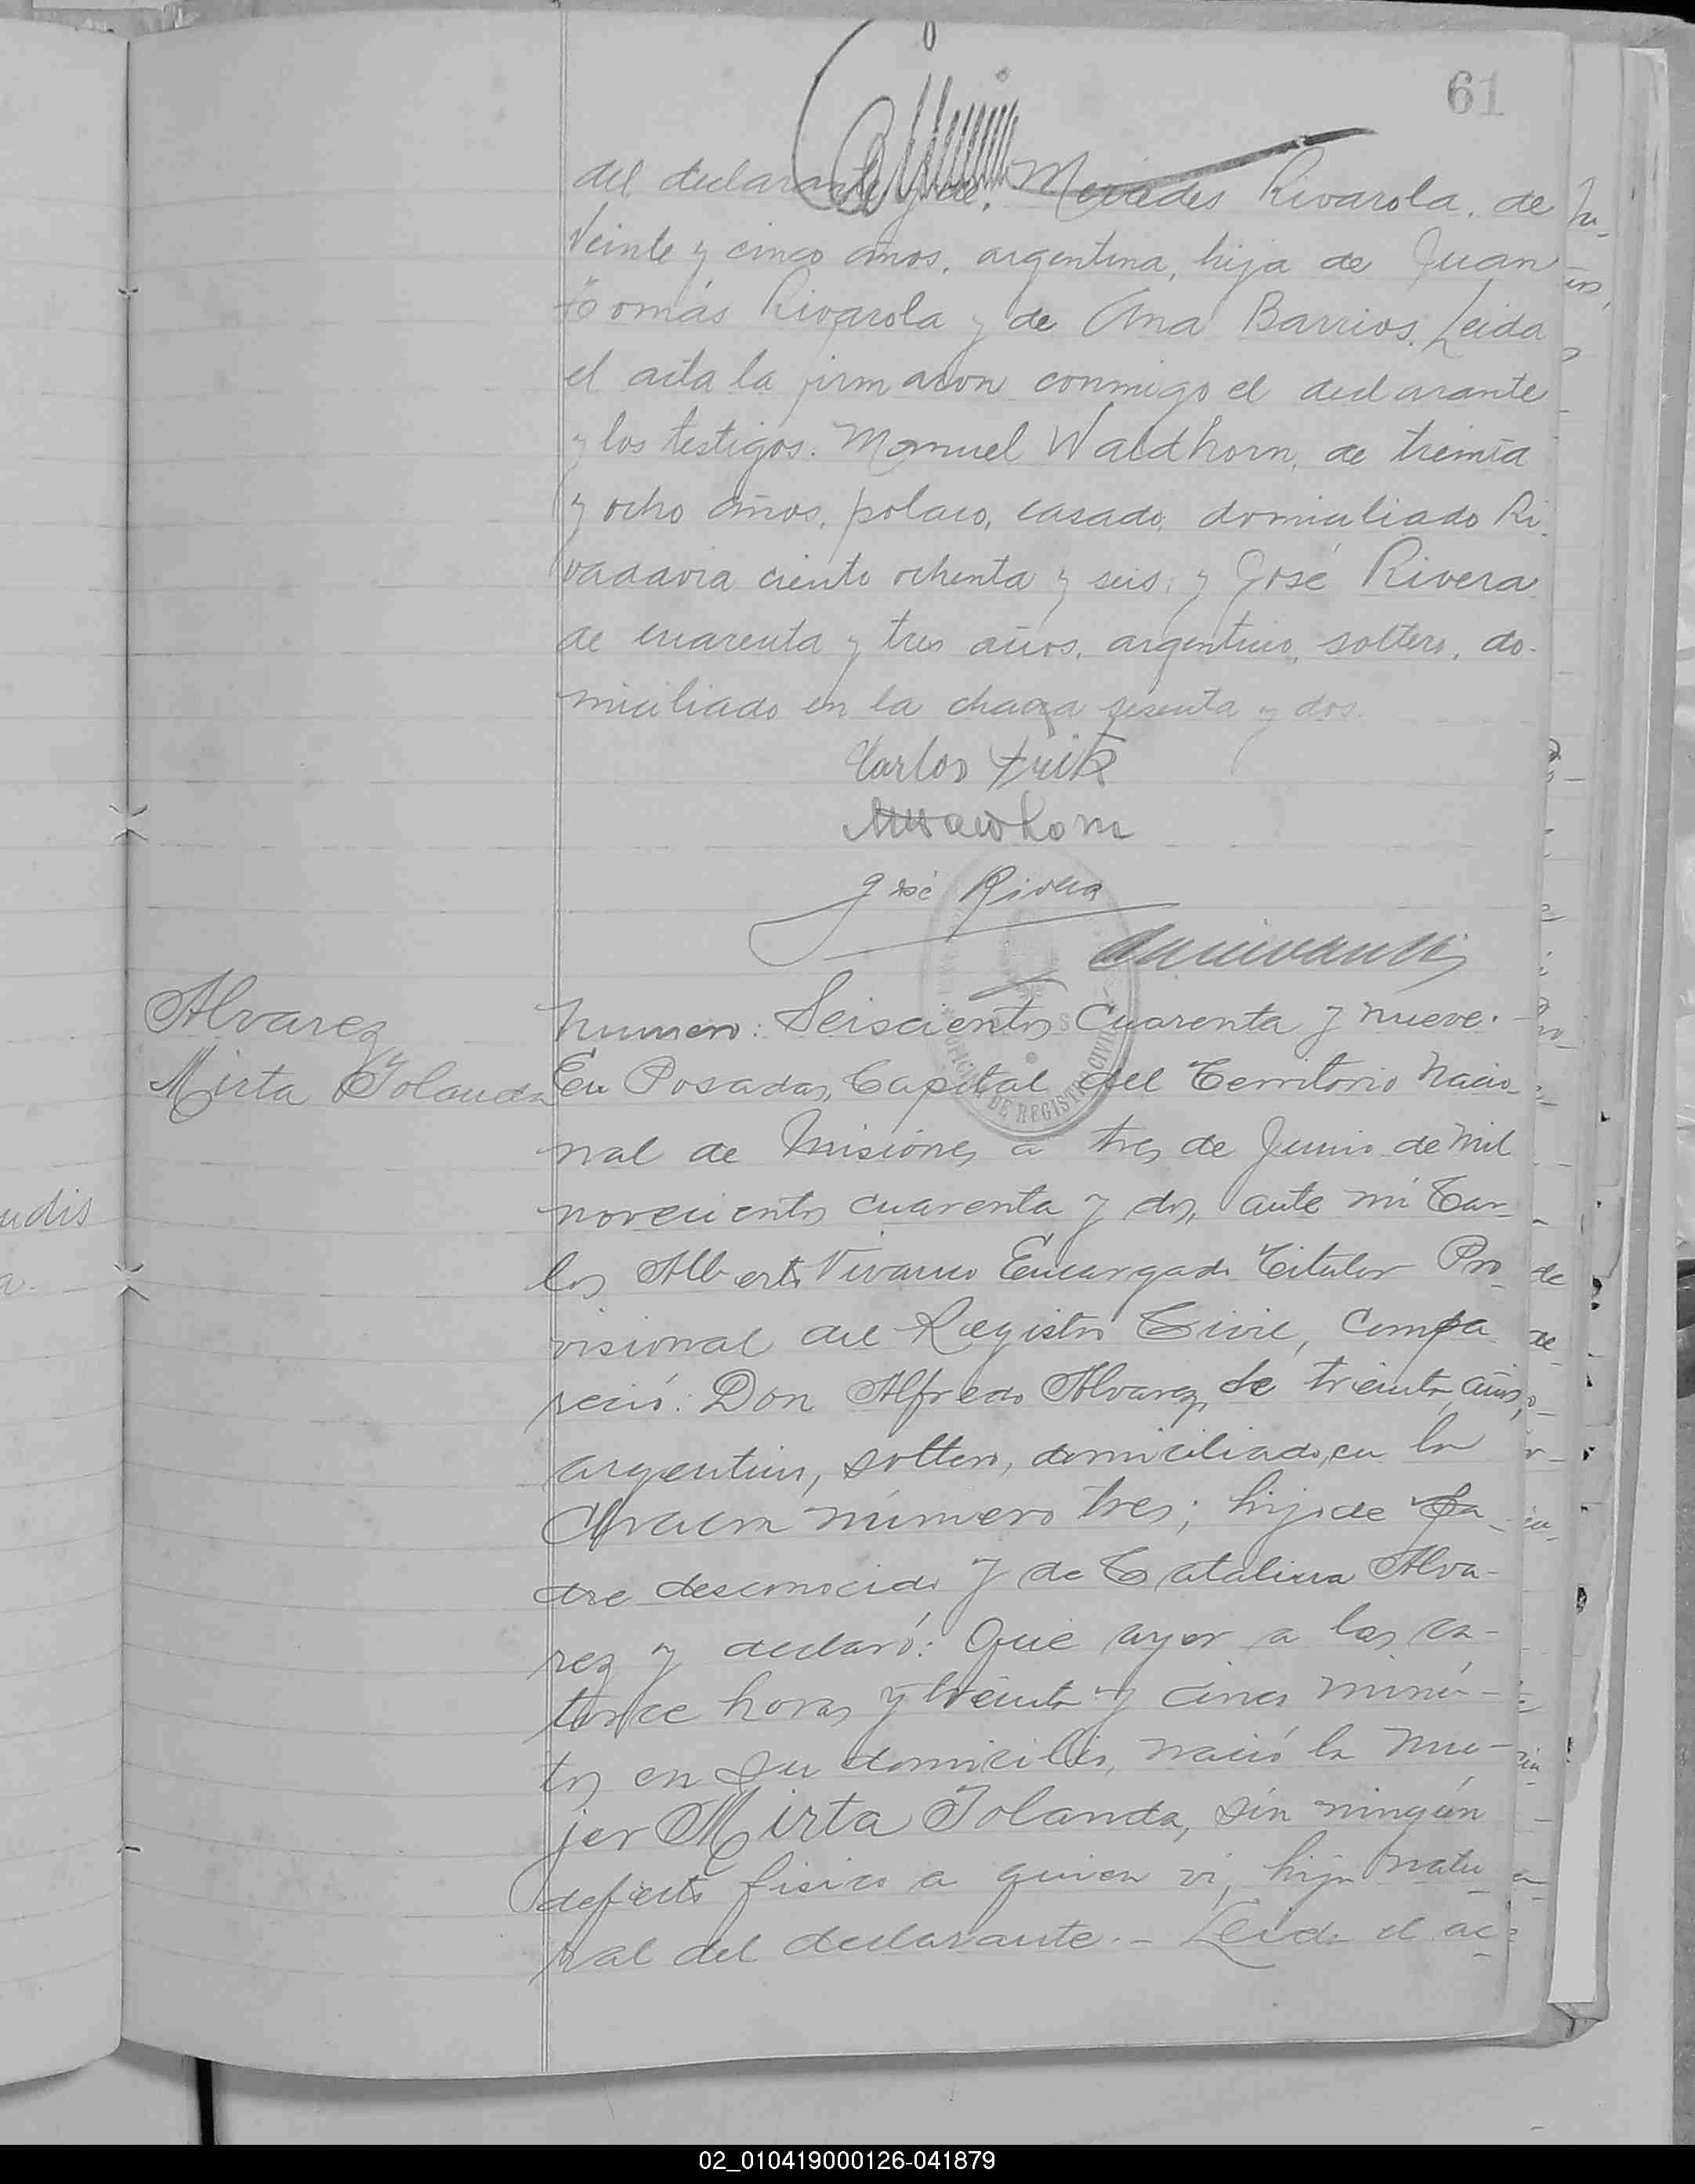 61
del declarante y de Mercedes Rivarola, de
veinte y cinco años, argentina, hija de Juan
Tomás Rivarola y de Ana Barrios. Leida
el acta la firmaron conmigo el declarante
y los testigos: Manuel Waldhorn, de treinta
y ocho años, polaco, casado, domiciliado Ri-
vadavia ciento ochenta y seis; y José Rivera
de cuarenta y tres años, argentino, soltero, do-
miciliado en la chacra sesenta y dos.
Carlos
José Rivera
Alvarez
Mirta Yolanda
Numero: Seiscientos Cuarenta y nueve.
En Posadas, Capital del Territorio Nacio-
nal de Misiones a tres de Junio de mil
novecientos cuarenta y dos, ante mi Car-
los Alberto Encargado Titular Pro-
visional del Registro Civil, Compa-
reció: Don Alfredo Alvarez, de treinta años,
argentino, soltero, domiciliado en la
Chacra número tres; hijo de pa-
dre desconocido y de Catalina Alva-
rez y declaró: Que ayer a las ca-
torce horas y treinta y cinco minu-
tos en su domicilio, nació la mu-
jer Mirta Yolanda, sin ningún
defecto fisico a quien vi, hija natu-
ral del declarante.- Leida el ac-
OFICINA DE REGISTRO CIVIL
udis
02_010419000126-041879